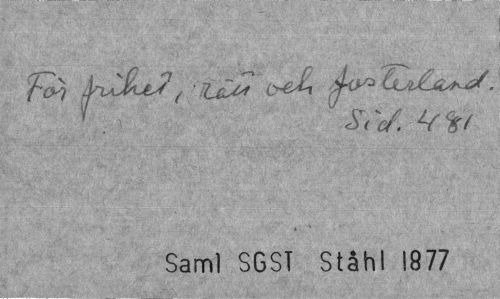 För frihet, rätt och fosterland.
Sid. 481
Saml SGST Ståhl 1877